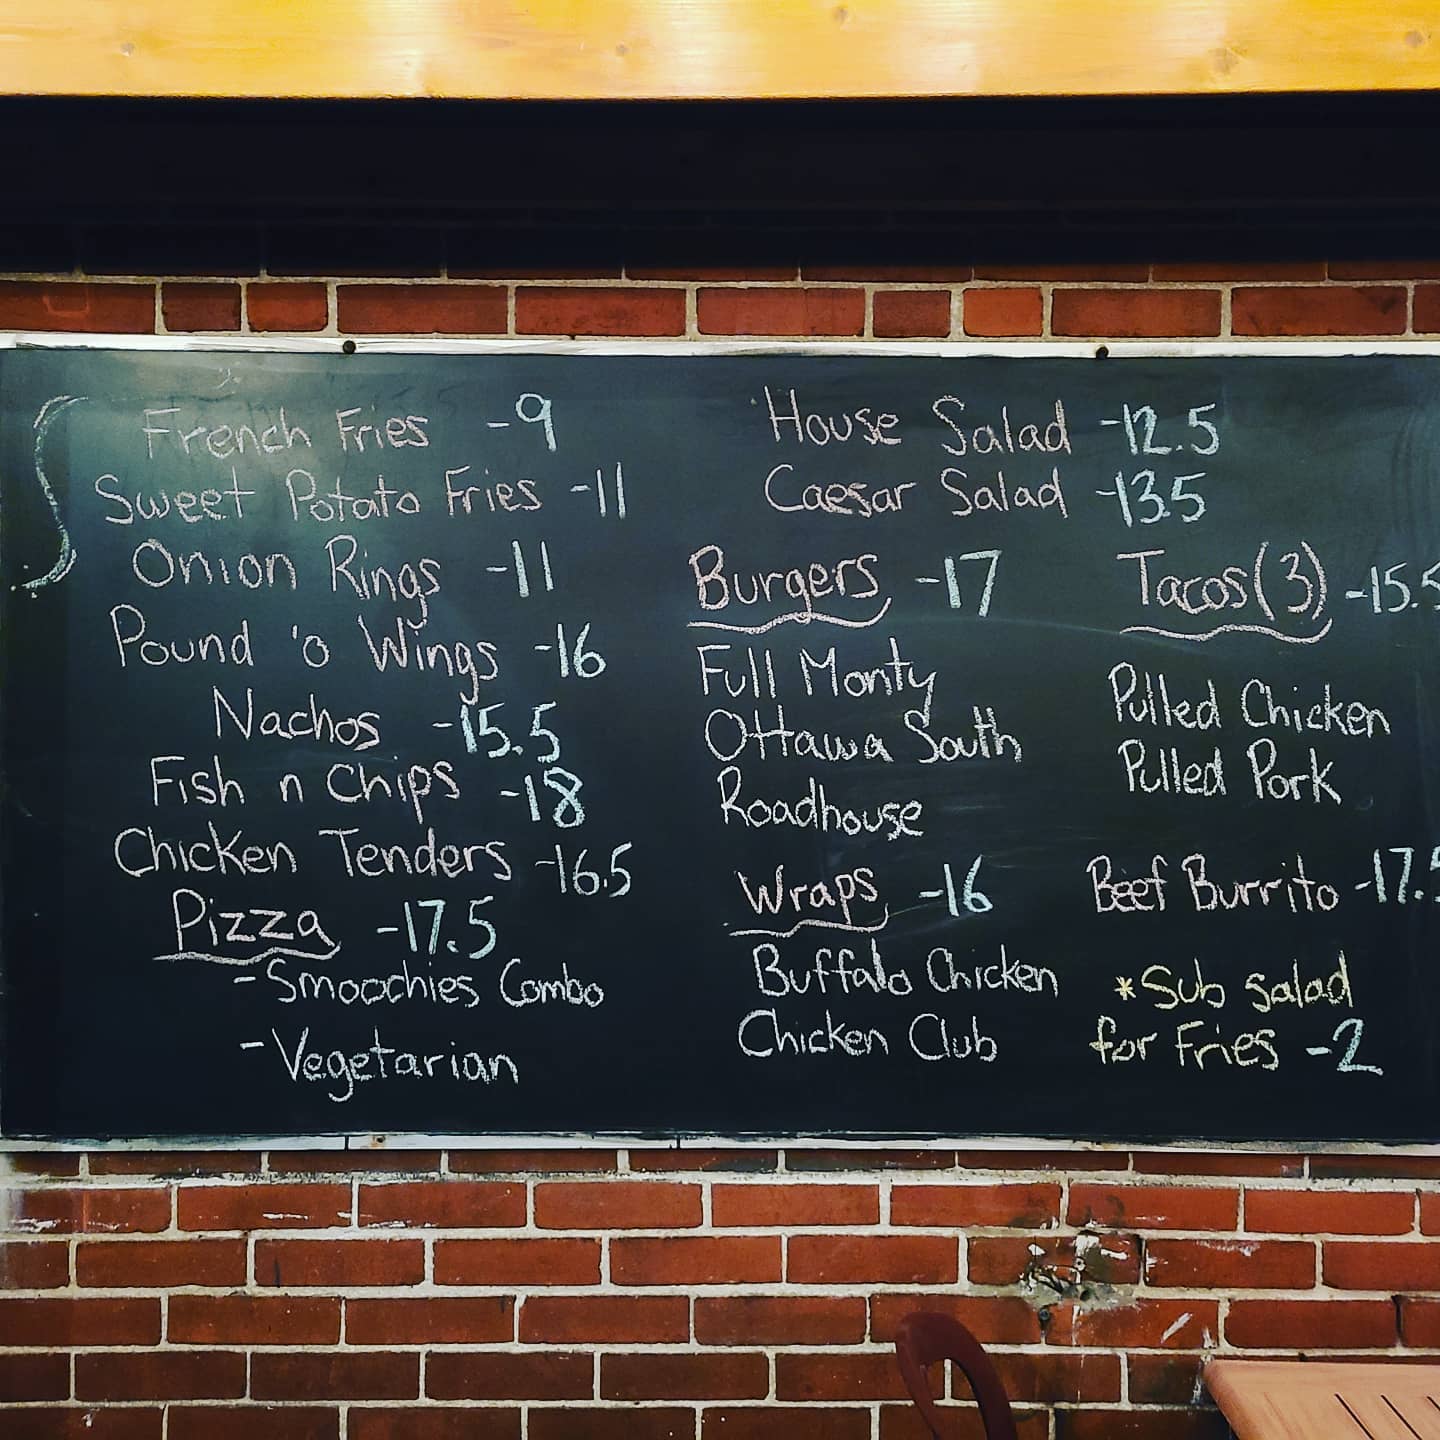 French Fries -9
Sweet Potato Fries -11
Onion Rings -11
Pound 'o Wings -16
Nachos -15.5
Fish n Chips -18
Chicken Tenders -16.5
Pizza -17.5
-Smoochies Combo
-Vegetarian
House Salad -12.5
Caesar Salad -13.5
Burgers -17
Full Monty
Ottawa South
Roadhouse
Wraps -16
Buffalo Chicken
Chicken Club
Tacos(3) -15.5
Pulled Chicken
Pulled Pork
Beef Burrito -17.5
*Sub salad
for Fries -2